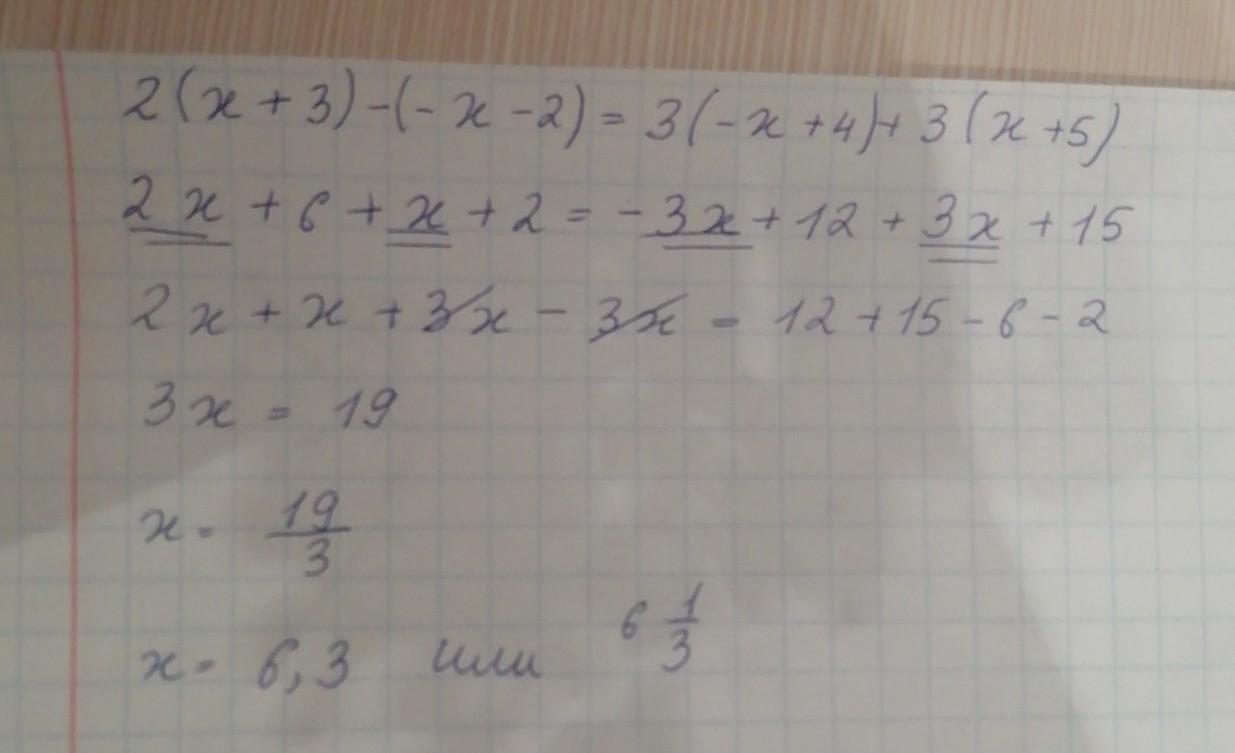 2(x+3)-(-x-2)=3(-x+4)+3(x+5)
2x+6+x+2=-3x+12+3x+15
2x+x+3x-3x=12+15-6-2
3x=19
x=19/3
x=6,3 или 6 1/3